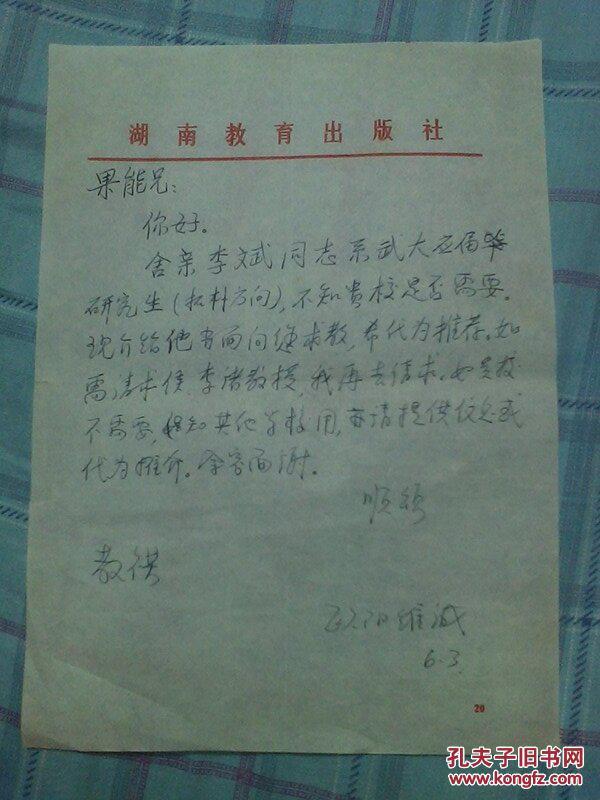 湖南教育出版社
果能兄：
你好。
舍亲李文斌同志系武大应届毕
研究生（拓朴方向），不知贵校是否需要。
现介绍他当面向您求教，希代为推荐。如
需请求侯、李诸教授，我再去信求。如贵校
不需要，知其他学校用，亦请提供信息或
代为推介。余容面谢。
顺颂
教祺
欧阳维诚
6.3
20
孔夫子旧书网
www.kongfz.com